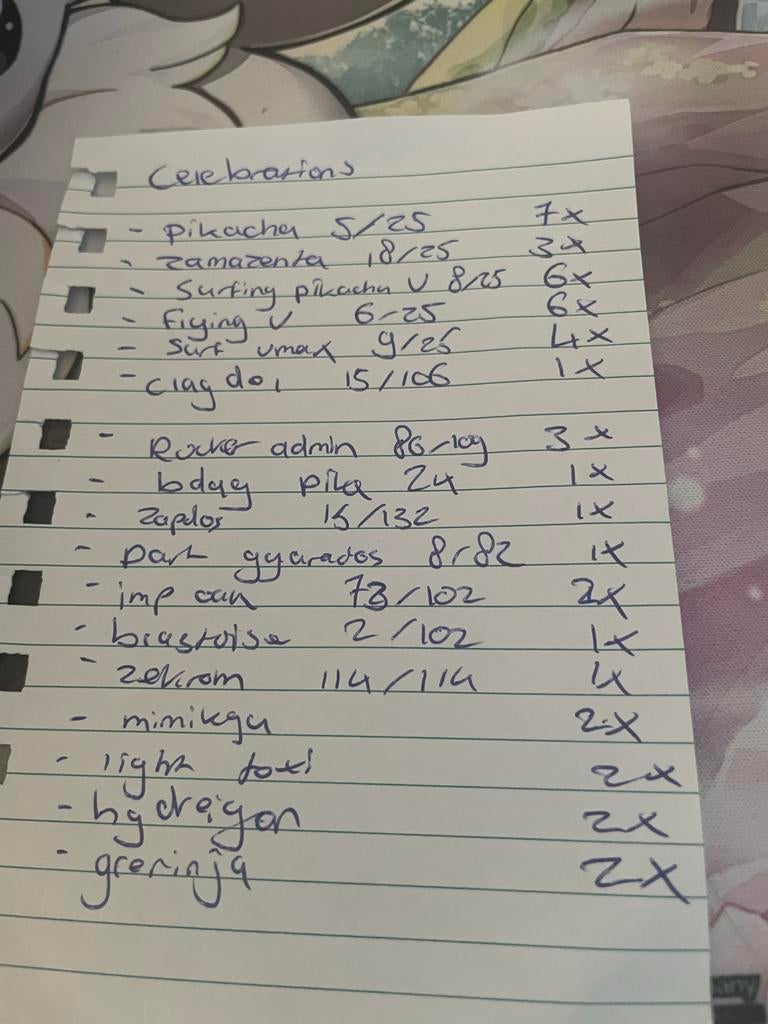 Celebrations
- Pikacha 5/25 7x
- Zamazenta 18/25 3x
- Surfing pikacha V 8/25 6x
- Flying V 6/25 6x
- Surf vmax 9/25 4x
- Claydol 15/106 1x
- Rocket admin 86/109 3x
- bday pika 24 1x
- Zapdos 15/132 1x
- Dark gyarados 8/82 1x
- imp oak 73/102 2x
- blastoise 2/102 1x
- zekrom 114/114 1x
- mimikyu 2x
- light toxi 2x
- hydreigon 2x
- greninja 2x
any